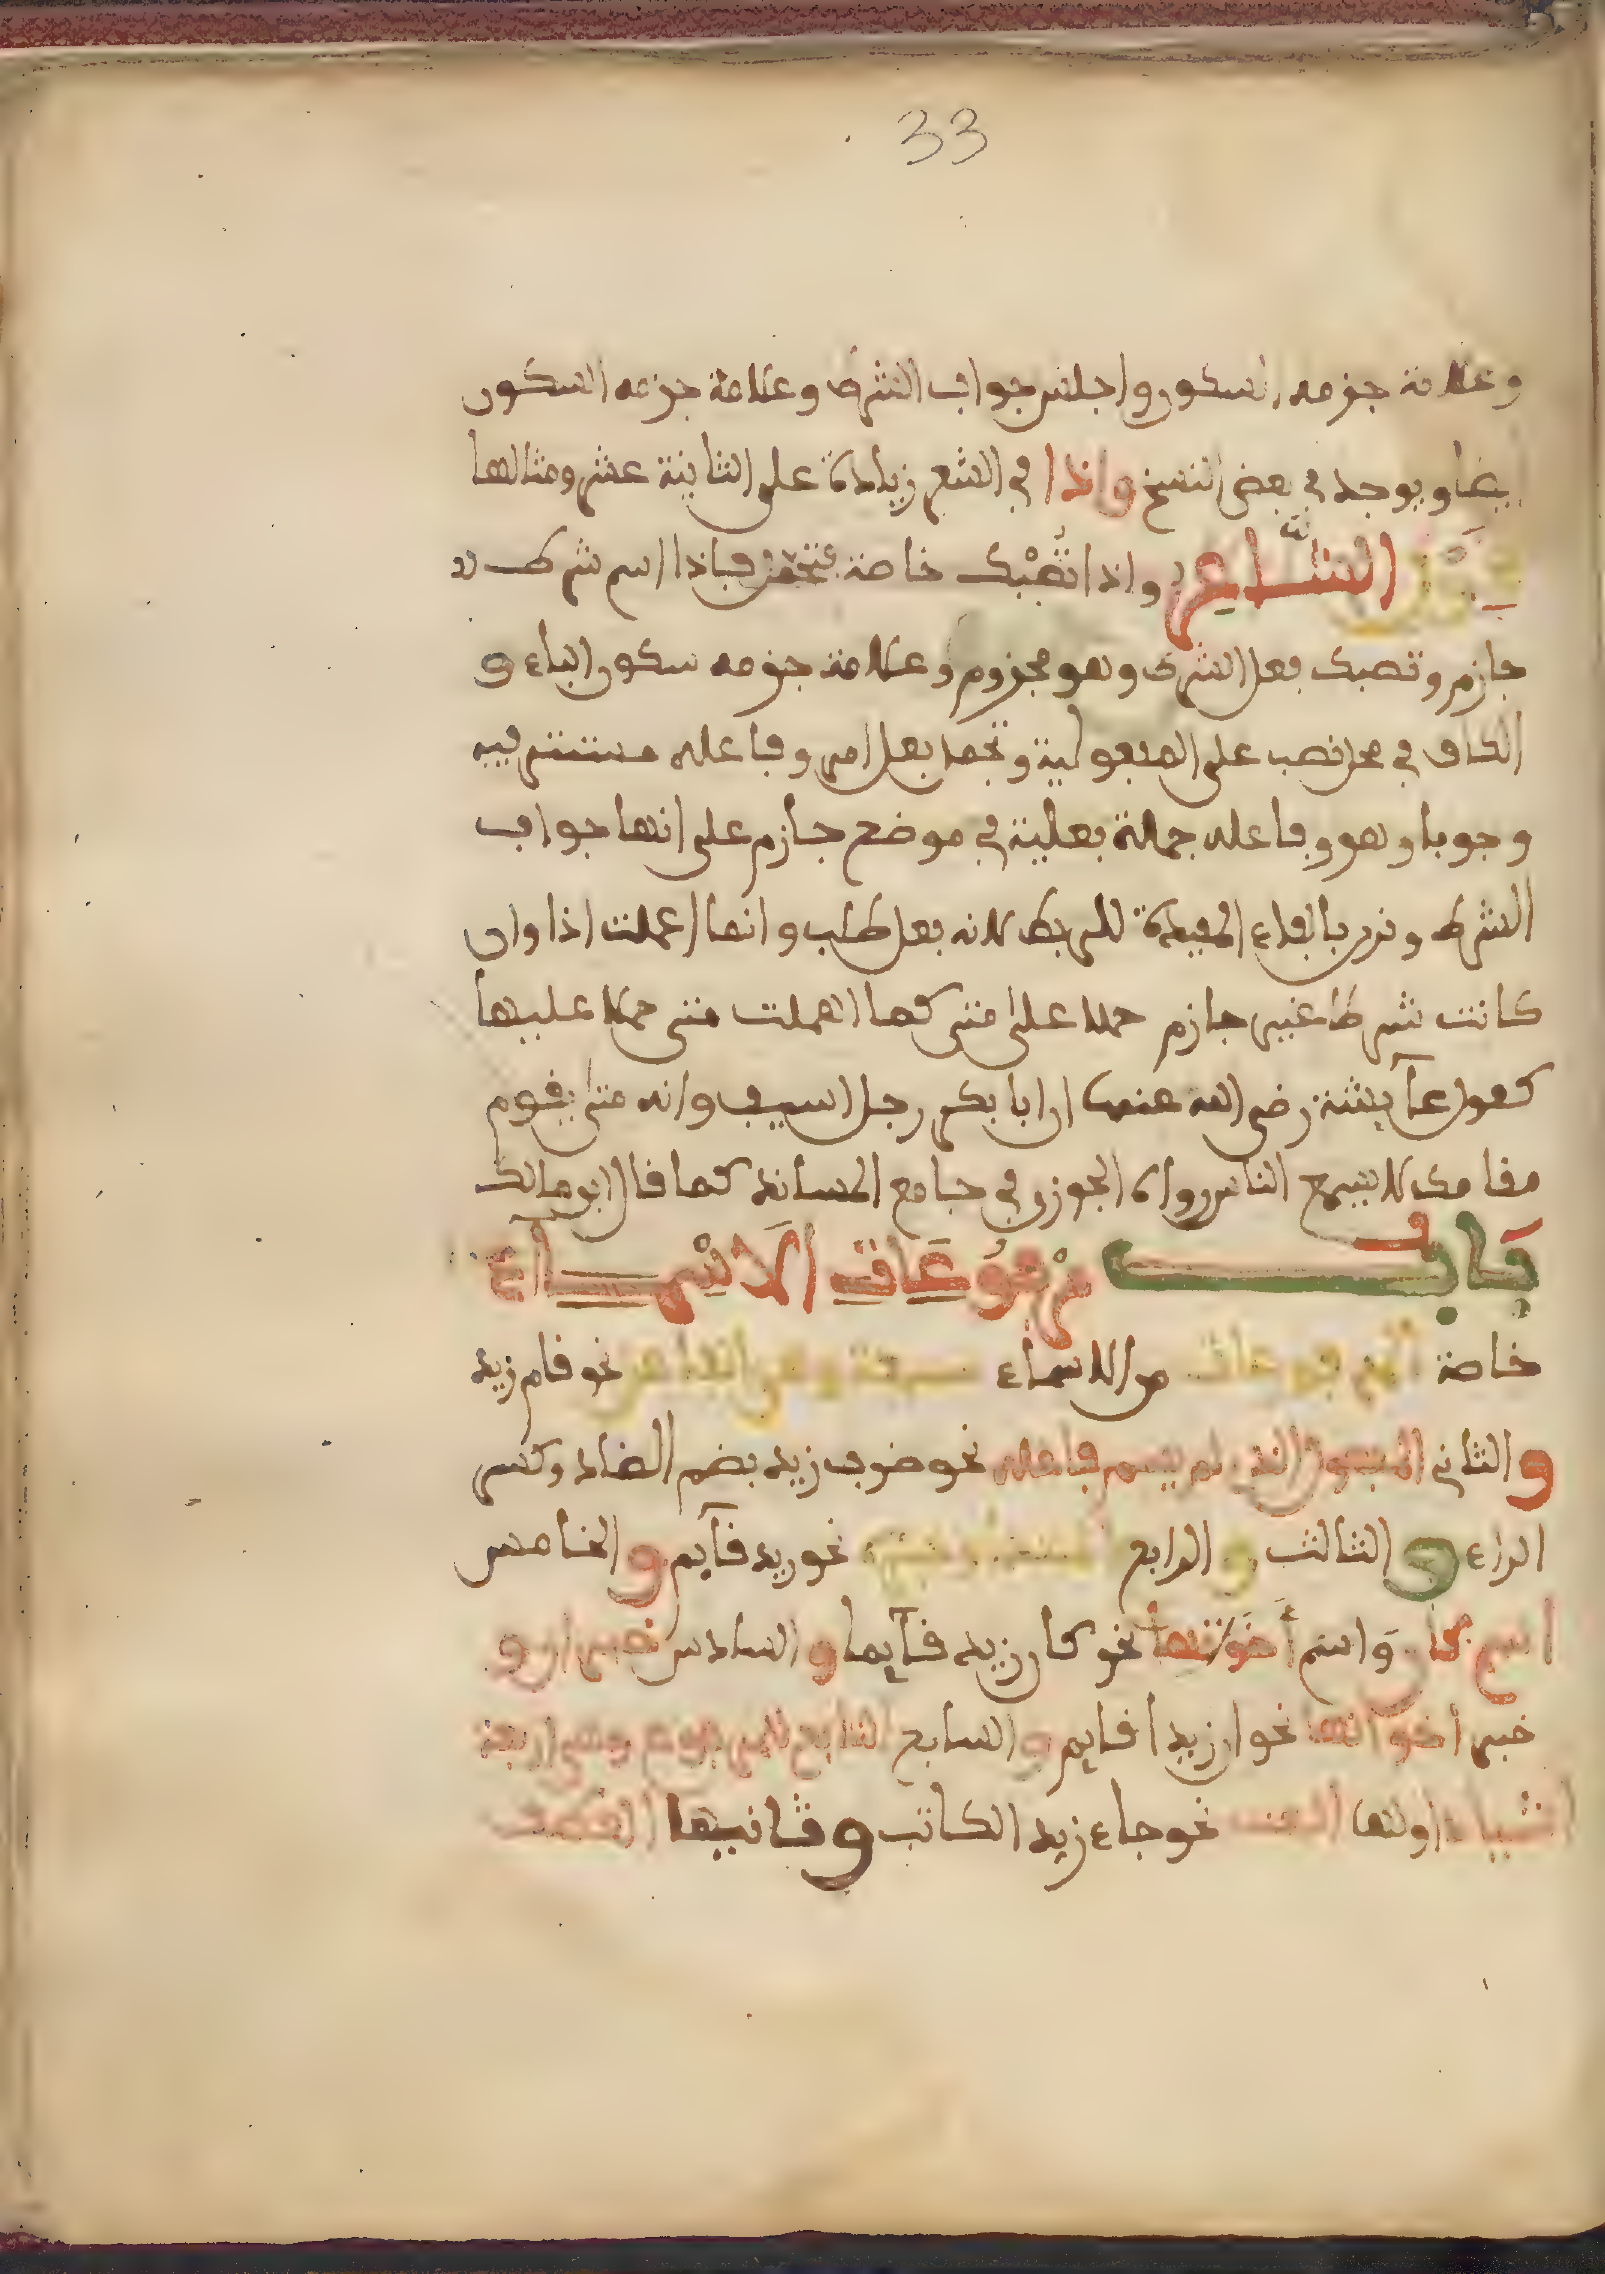 33
وعلامة جزمه السكون واجلس جواب الشرط وعلامة جزمه السكون
ايضا ويوجد في بعض النسخ واذا في الشعر زيادة على الثمانية عشر ومثالها
قول الشاعر واذا تصبك خاصة فتحمل فاذا اسم شرط
جازم وتصبك فعل الشرط وهو مجزوم وعلامة جزمه سكون الباء و
الكاف في محل نصب على المفعولية وتحمل فعل امر وفاعله مستتر فيه
وجوبا وهو وفاعله جملة فعلية في موضع جازم على انها جواب
الشرط وقرن بالفاء المفيدة للربط لانه فعل طلب وانما اعملت اذا وان
كانت شرطا غير جازم حملا على متى كما اهملت متى حملا عليها
كقول عآيشة رضي الله عنها ان ابا بكر رجل اسيف وانه متى يقوم
مقامك لا يسمع الناس رواه الجوزي في جامع المساند كما قال ابو مالك
باب مرفوعات الاسماء
خاصة المرفوعات من الاسماء سبعة وهي الفاعل نحو قام زيد
والثاني المفعول الذي لم يسم فاعله نحو ضرب زيد بضم الضاد وكسر
الراء والثالث والرابع المبتدأ وخبره نحو زيد قآيم والخامس
اسم كان واسم أخواتها نحو كان زيد قآيما والسادس خبر ان و
خبر أخواتها نحو ان زيدا قايم والسابع التابع للمرفوع وهي اربعة
اشياء اولها النعت نحو جاء زيد الكاتب وثانيها العطف